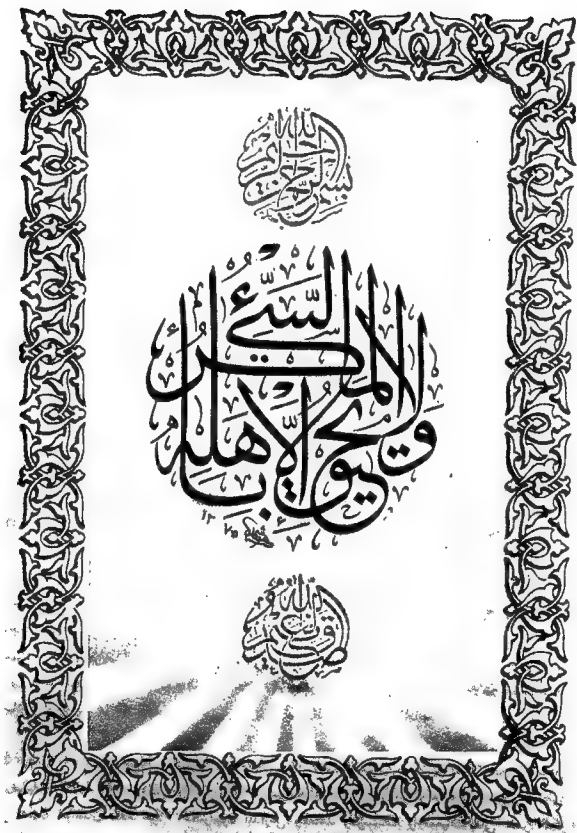 بسم الله الرحمن الرحيم
ولا يحيق المكر السيئ إلا بأهله
صدق الله العظيم